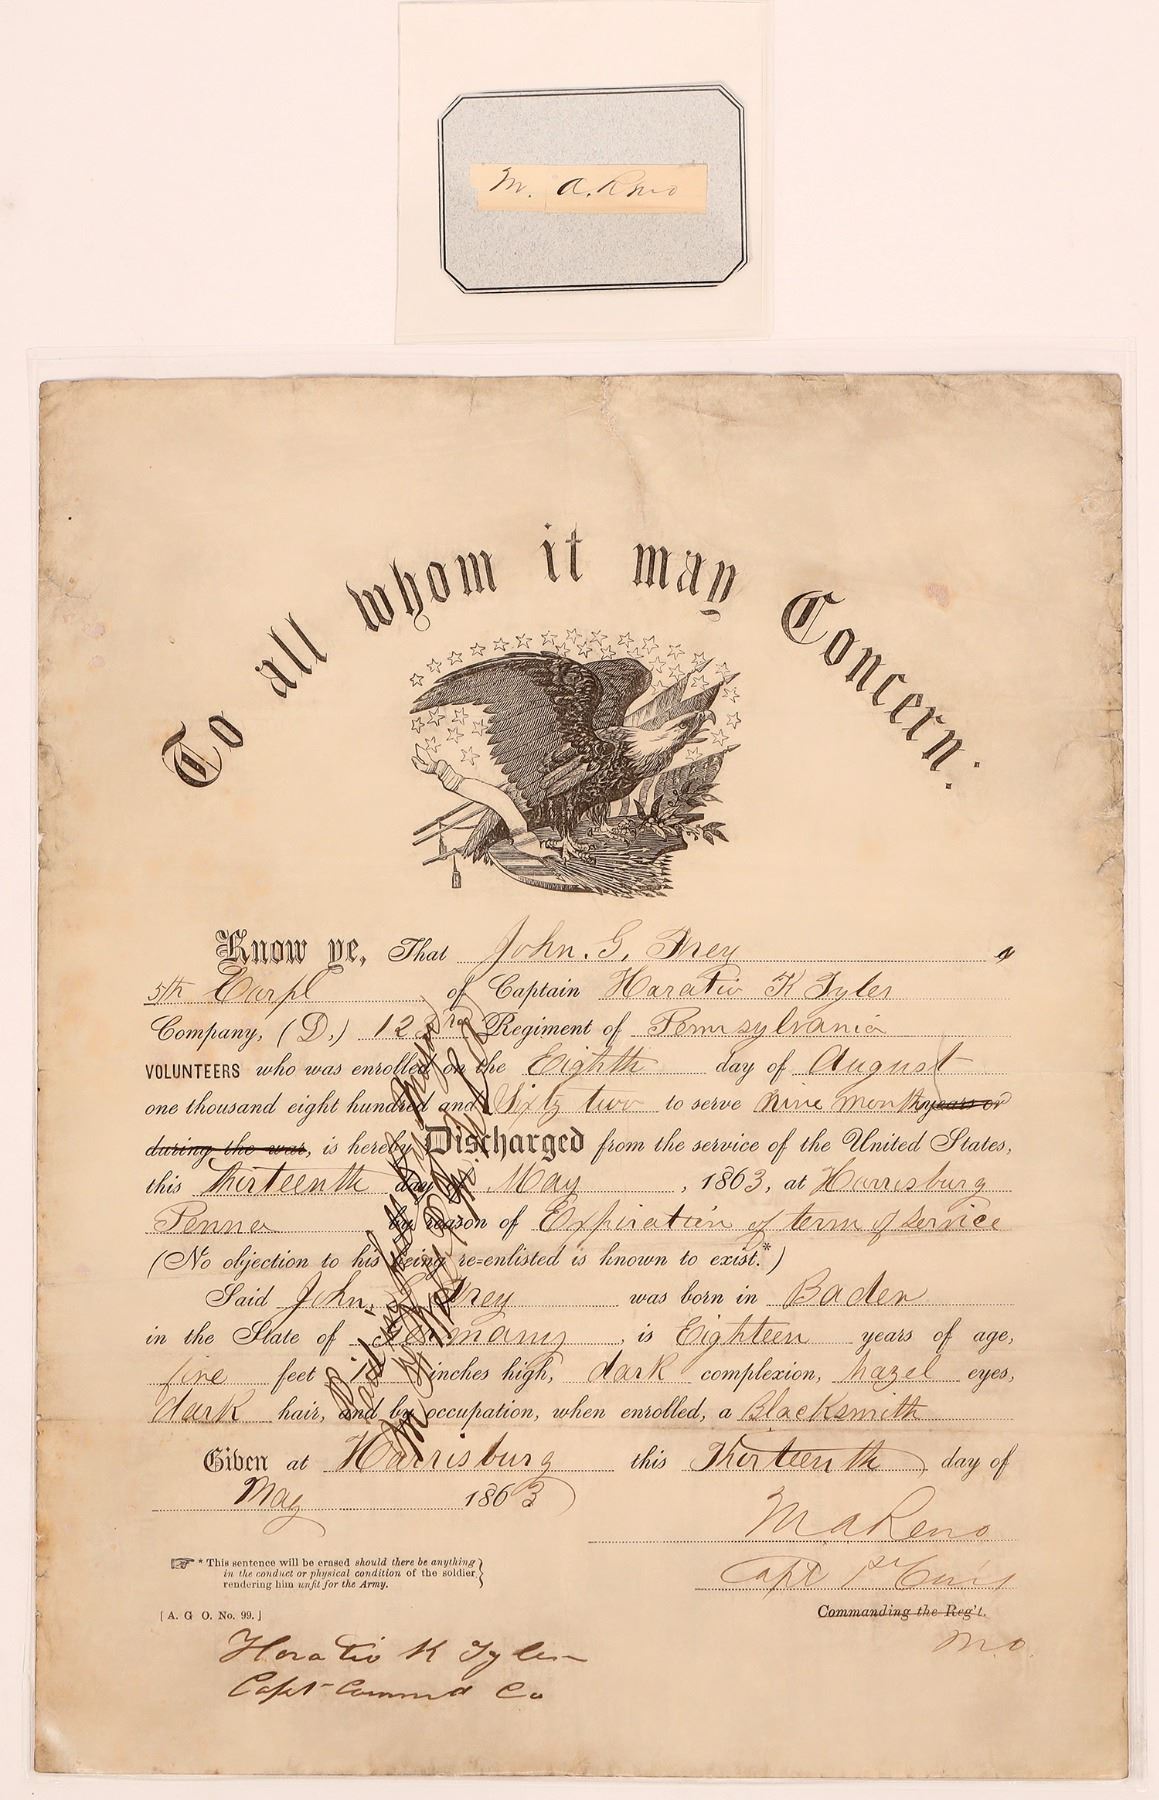 M. A. Reno
To all whom it may Concern:
Know ye, That John. G. Frey a
5th Corpl of Captain Horatio K Tyler
Company, (D,) 123rd Regiment of Pennsylvania
VOLUNTEERS who was enrolled on the Eighth day of August
one thousand eight hundred and Sixty two to serve nine months years or
during the war, is hereby Discharged from the service of the United States,
this Thirteenth day of May, 1863, at Harrisburg
Penna by reason of Expiration of term of Service
(No objection to his being re-enlisted is known to exist.*)
Said John. G. Frey was born in Baden
in the State of Germany, is Eighteen years of age,
five feet inches high, dark complexion, hazel eyes,
dark hair, and by occupation, when enrolled, a Blacksmith
Given at Harrisburg this Thirteenth day of
May 1863
M A Reno
Capt 1st Cav
Commanding the Reg't.
M.O.
☞ * This sentence will be erased should there be anything
in the conduct or physical condition of the soldier
rendering him unfit for the Army.
[A. G O. No. 99.]
Horatio K Tyler
Capt Commd Co